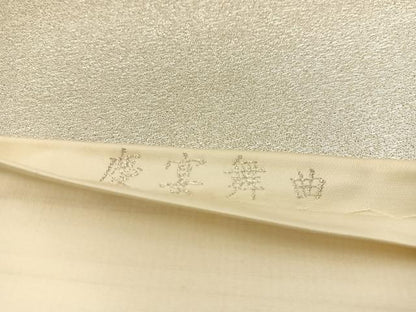 慶宴舞曲